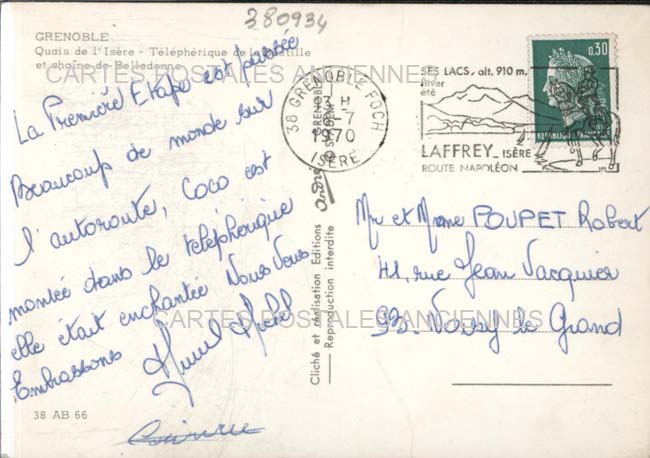 380934
GRENOBLE
Quais de l'Isère - Téléphérique de la Bastille
et chaîne de Belledonne
CARTES POSTALES ANCIENNES
La Première Etape est passée
Beaucoup de monde sur
l'autoroute, Coco est
montée dans le téléphérique
elle était enchantée Nous Vous
Embrassons
38 AB 66
38 GRENOBLE FOCH
13 H
-7
1970
ISÈRE
SES LACS, alt. 910 m.
hiver
été
LAFFREY _ ISÈRE
ROUTE NAPOLÉON
0,30
REPUBLIQUE FRANÇAISE
GRENOBLE
Cliché et réalisation Editions
Reproduction interdite
Mr et Mme POUPET Robert
41, rue Jean Vacquier
93. Noisy le Grand
CARTES POSTALES ANCIENNES